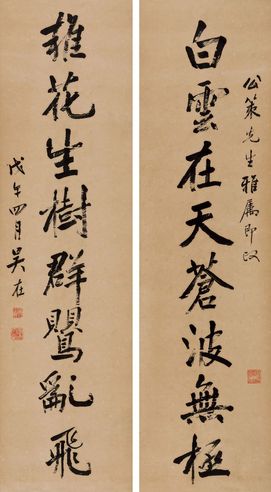 公策先生雅属即政
白雲在天蒼波無極
雜花生樹群鶯亂飛
戊午四月吴在